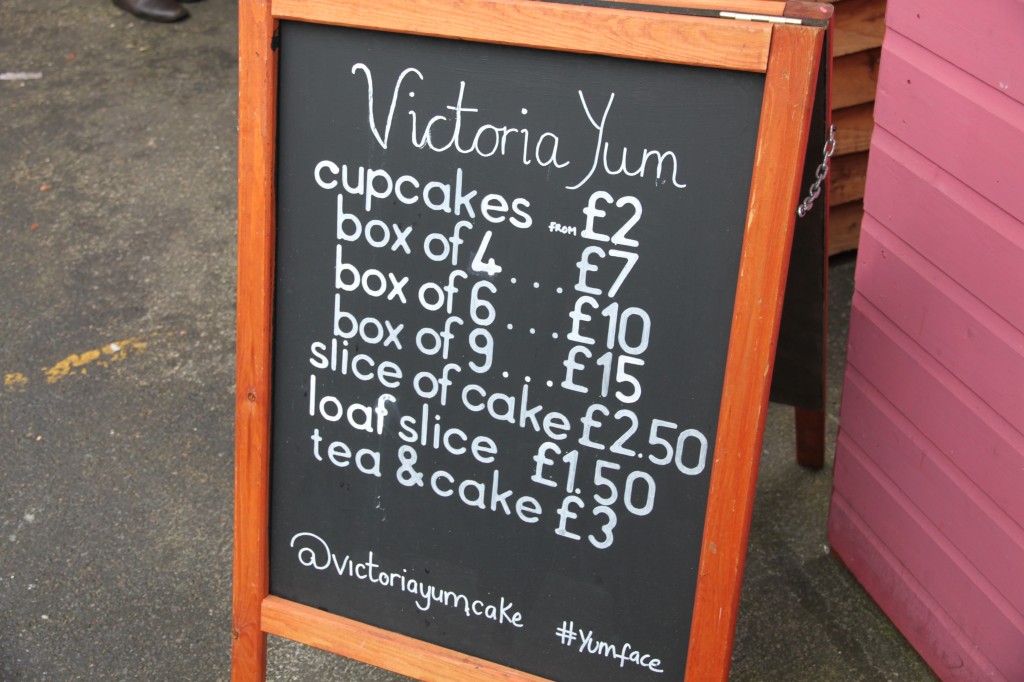 Victoria Yum
cupcakes FROM £2
box of 4.... £7
box of 6.... £10
box of 9.... £15
slice of cake £2.50
loaf slice £1.50
tea & cake £3
@victoriayumcake
#yumface